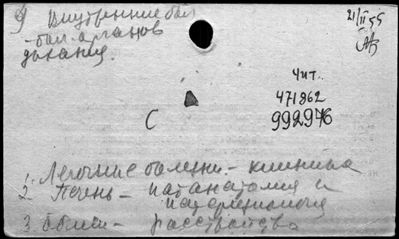 9 Внутренние бол.
-бол. органов
дыхания.
21/II 55
Чит.
471862
992976
С
1. Легочные болезни. - клиника
2. Печень - патанатомия и
патфизиология
3. Обмен - расстройства